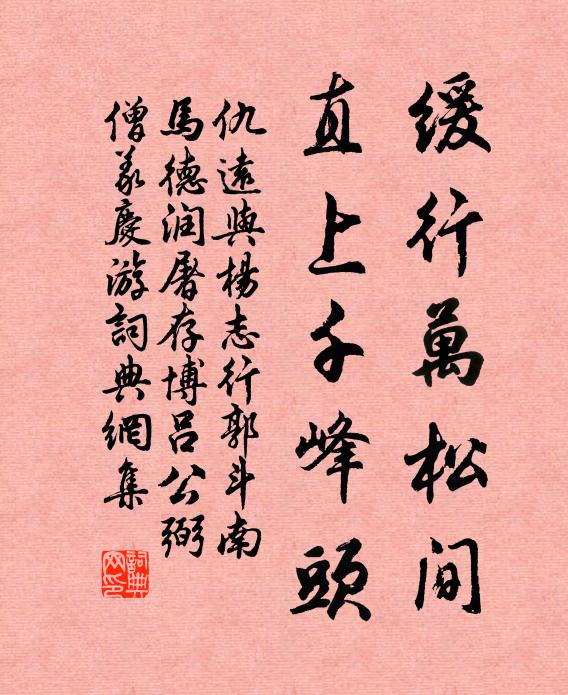 緩行萬松間
直上千峰頭
仇遠與楊志行郭斗南
馬德润屠存博吕公弼
僧義慶游詞典網集
詞典网印